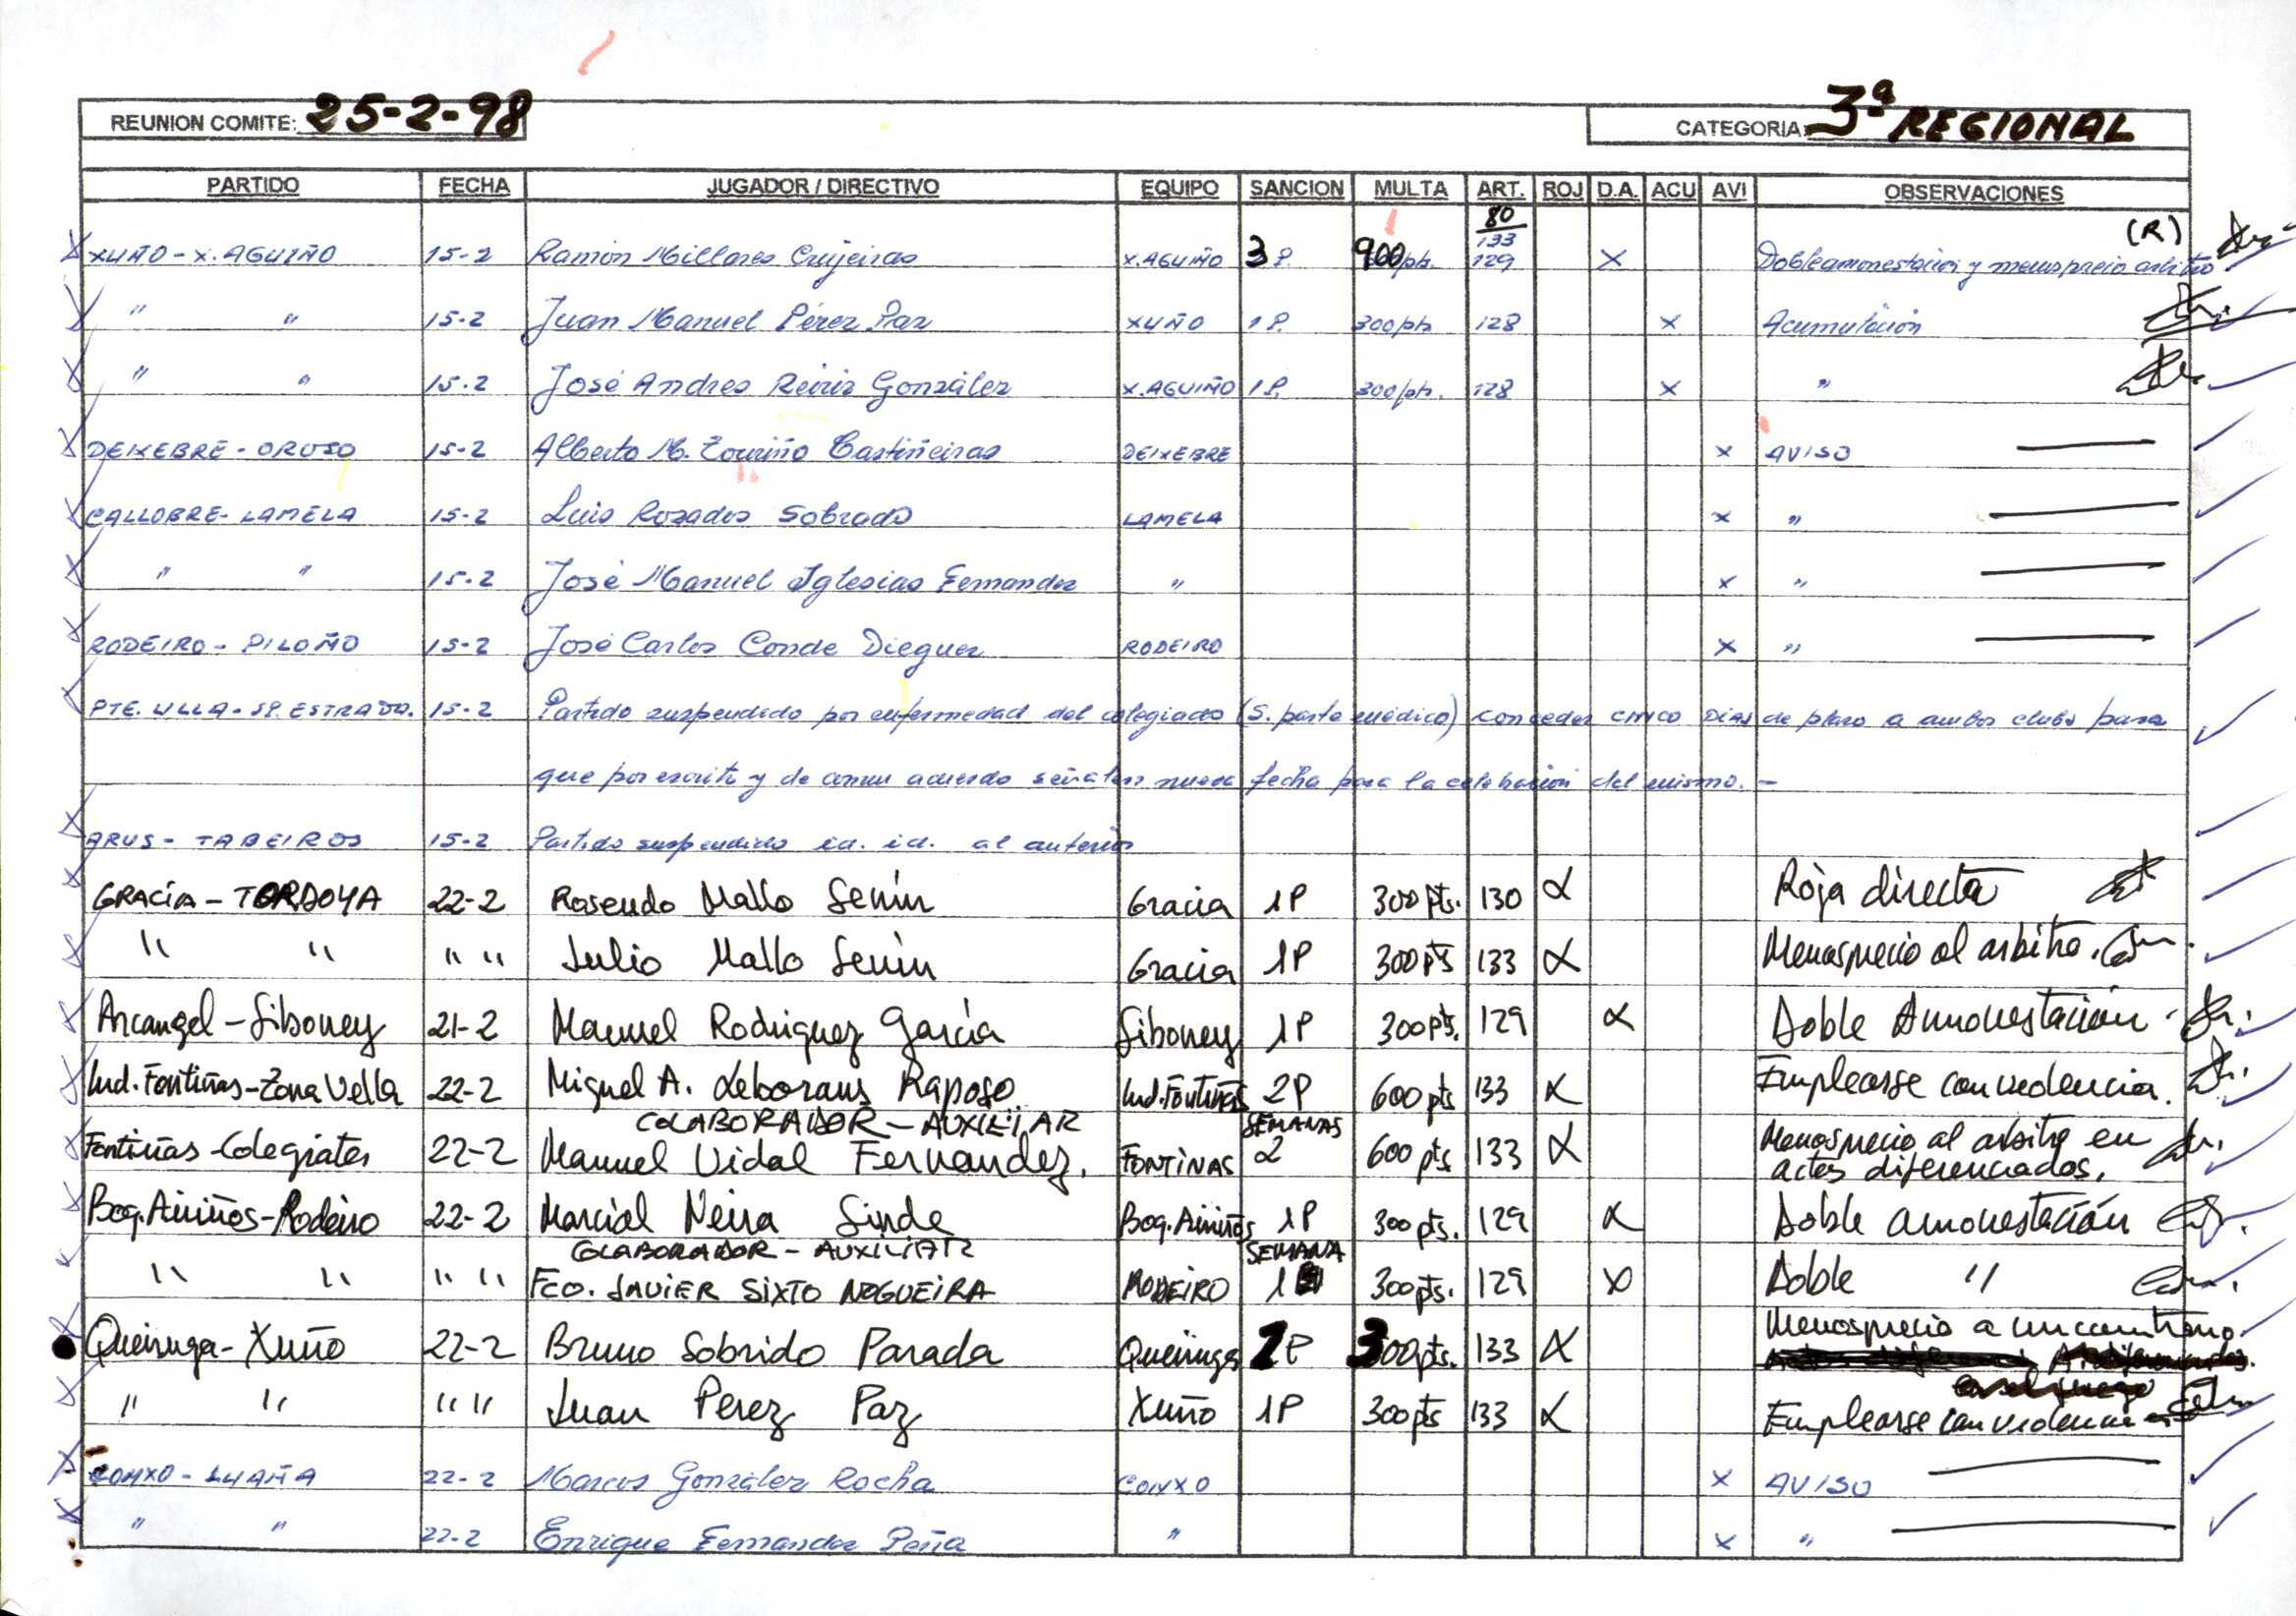 REUNION COMITE: 25-2-98 CATEGORIA: 3ª REGIONAL
PARTIDO FECHA JUGADOR / DIRECTIVO EQUIPO SANCION MULTA ART. ROJ D.A. ACU AVI OBSERVACIONES
80 (R)
133
XUÑO - X. AGUIÑO 15-2 Ramón Millares Crujeiras X. AGUIÑO 3 P. 900 pts. 129 X Doble amonestación y menosprecio arbitro
" " 15-2 Juan Manuel Pérez Paz XUÑO 1 P. 300 pts 128 X Acumulación
" " 15-2 José Andres Reiris González X. AGUIÑO 1 P. 300 pts. 128 X "
DEIXEBRE - OROSO 15-2 Alberto M. Touriño Castiñeiras DEIXEBRE X AVISO
CALLOBRE - LAMELA 15-2 Luis Rozados Sobrado LAMELA X "
" " 15-2 José Manuel Iglesias Fernandez " X "
RODEIRO - PILOÑO 15-2 José Carlos Conde Dieguez RODEIRO X "
PTE. ULLA - SP. ESTRADA. 15-2 Partido suspendido por enfermedad del colegiado (S. parte médico) conceder CINCO DIAS de plazo a ambos clubs para
que por escrito y de comun acuerdo señalen nueva fecha para la celebración del mismo. -
ARUS - TABEIROS 15-2 Partido suspendido id. id. al anterior
GRACÍA - TORDOYA 22-2 Rosendo Mallo Senín Gracia 1P 300 pts. 130 X Roja directa
" " " " Julio Mallo Senín Gracia 1P 300 pts 133 X Menosprecio al arbitro.
Arcangel - Siboney 21-2 Manuel Rodriguez García Siboney 1P 300 pts. 129 X Doble Amonestación
Ind. Fontiñas - Zona Vella 22-2 Miguel A. Leborans Raposo Ind. Fontiñas 2P 600 pts 133 X Emplearse con violencia.
COLABORADOR - AUXILIAR SEMANAS
Fontiñas - Colegiates 22-2 Manuel Vidal Fernandez. FONTIÑAS 2 600 pts 133 X Menosprecio al arbitro en
actos diferenciados.
Boq. Airiños - Rodeiro 22-2 Marcial Neira Sinde Boq. Airiños 1P 300 pts. 129 X Doble amonestación
COLABORADOR - AUXILIAR SEMANA
" " " " Fco. JAVIER SIXTO NOGUEIRA RODEIRO 1 300 pts. 129 X Doble "
Queiruga - Xuño 22-2 Bruno Sobrido Parada Queiruga 1P 300 pts. 133 X Menosprecio a un contrario.
" " " " Juan Perez Paz Xuño 1P 300 pts 133 X Emplearse con violencia
CONXO - LUAÑA 22-2 Marcos González Rocha CONXO X AVISO
" " 22-2 Enrique Fernandez Peña " X "